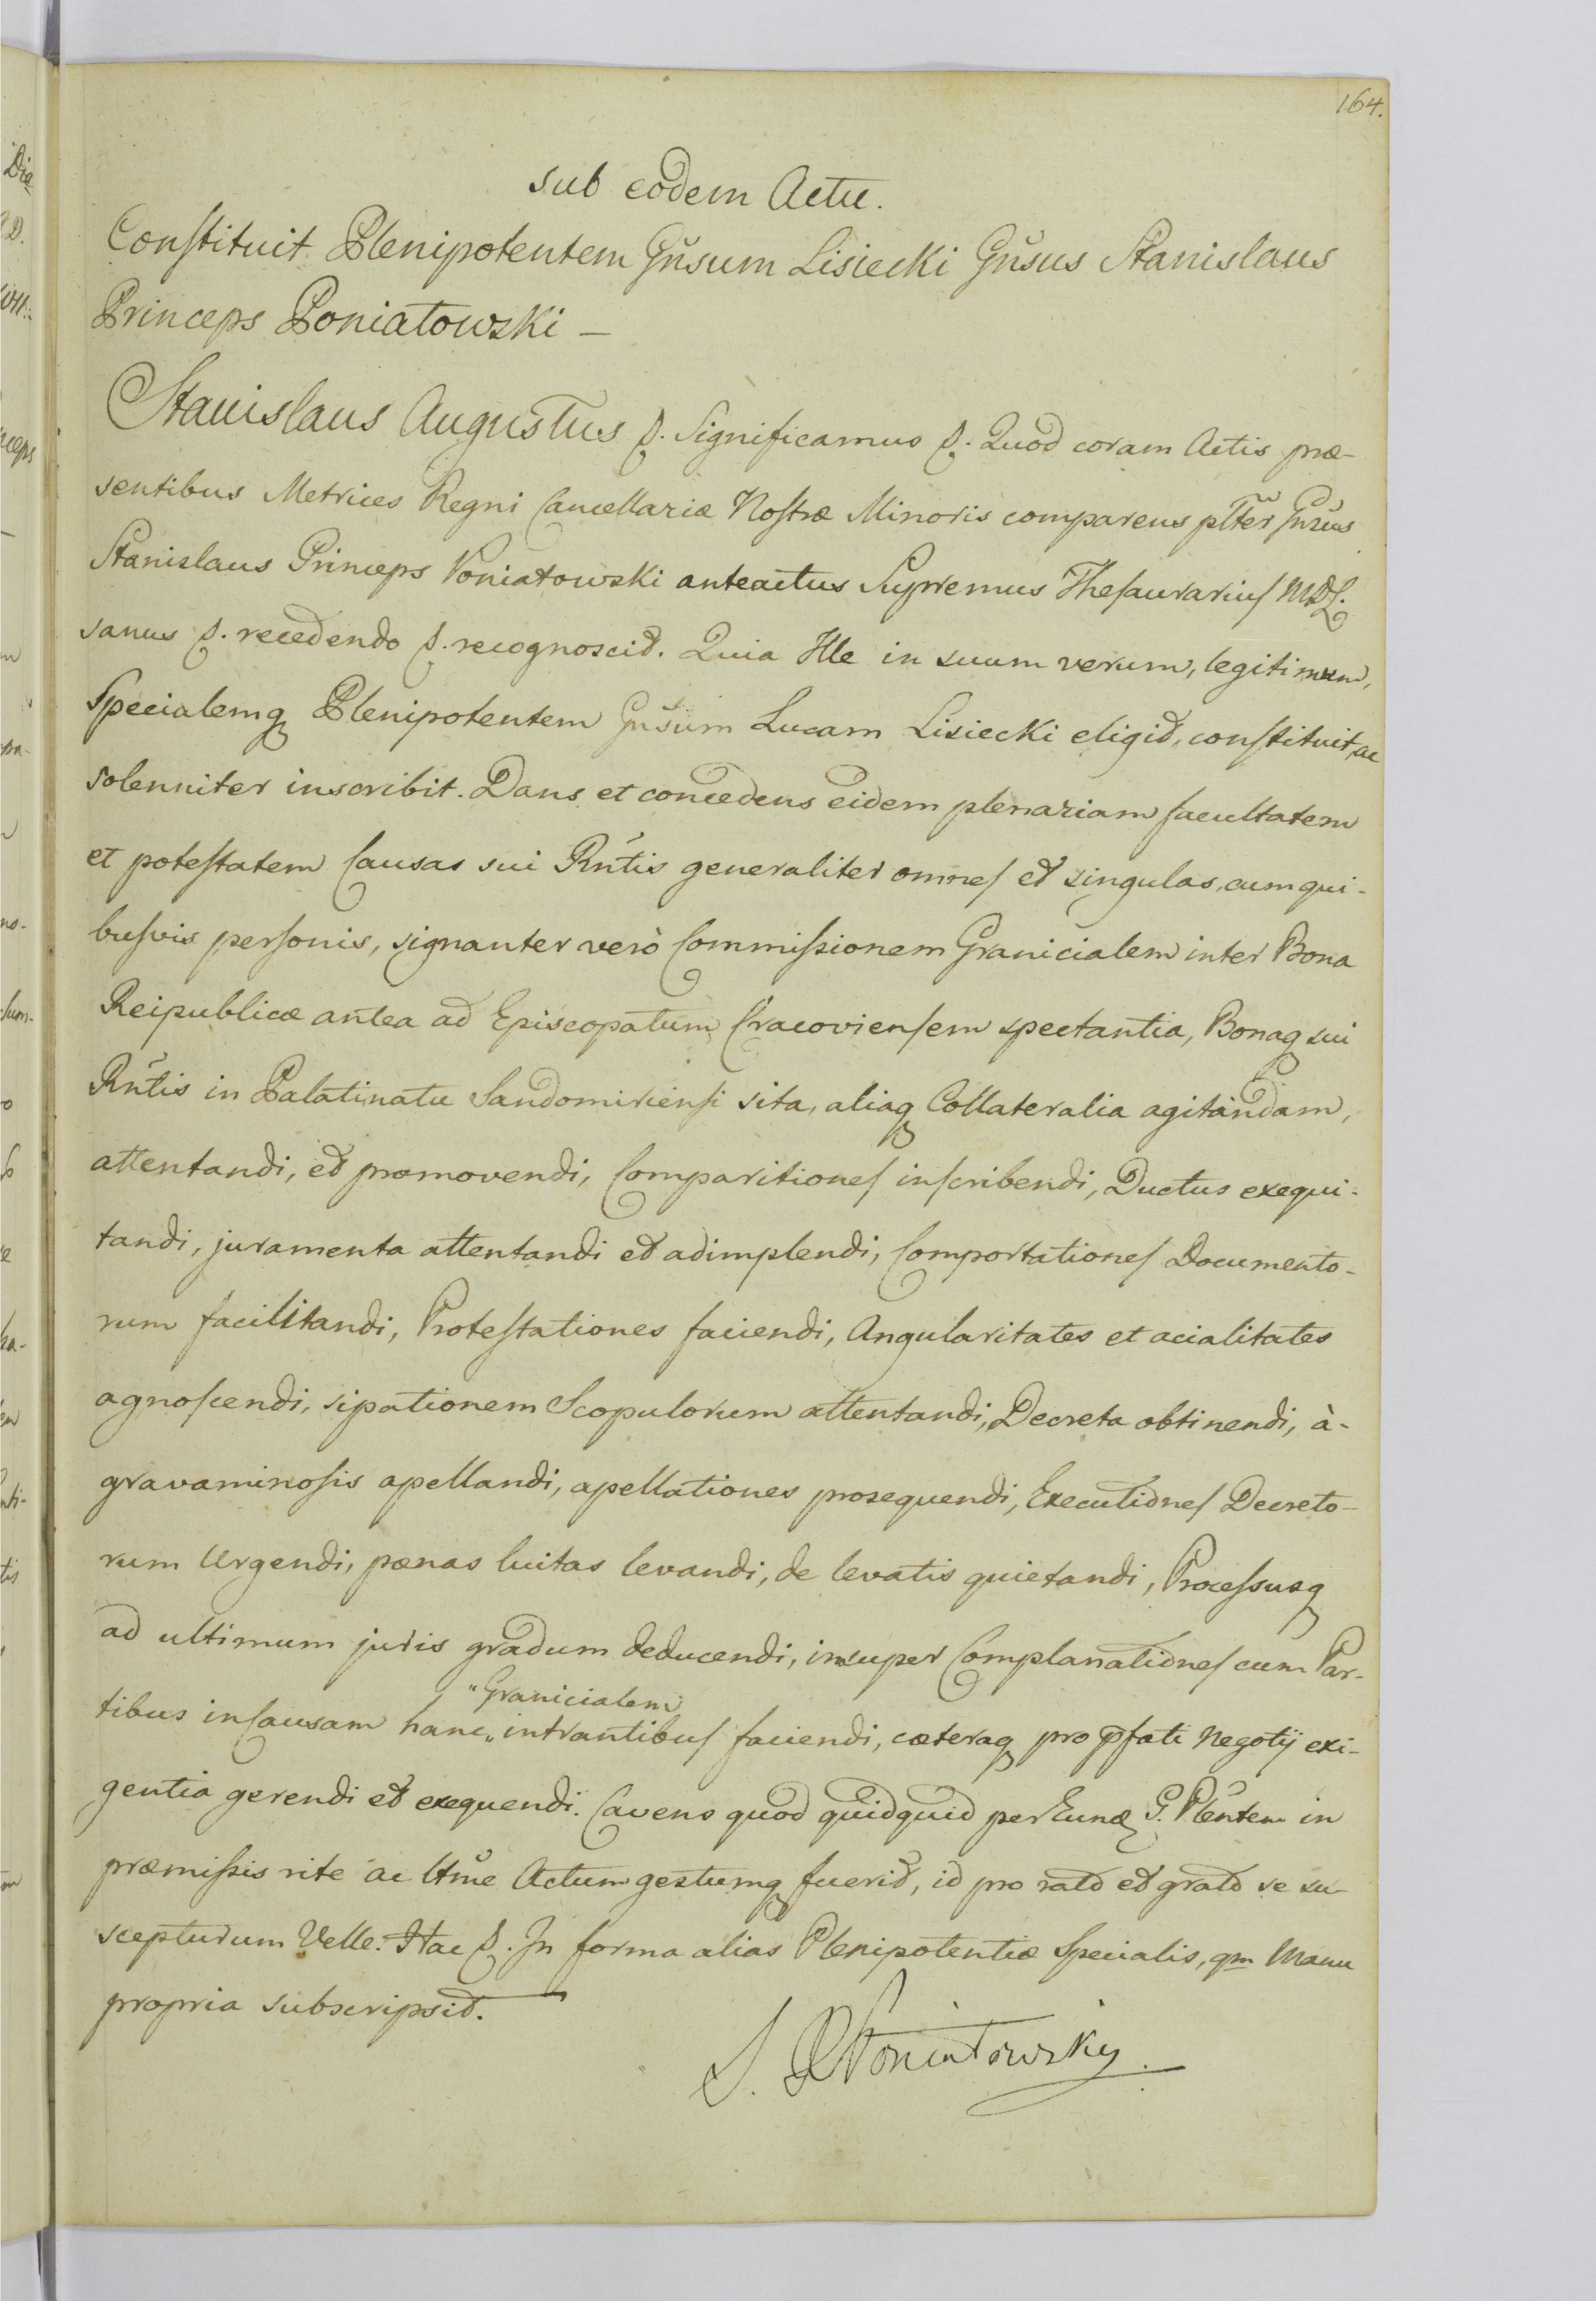 164.
sub eodem Actu.
Constituit Plenipotentem Gnsum Lisiecki Gnsus Stanislaus
Princeps Poniatowski –
Stanislaus Augustus &. Significamus &. Quod coram Actis præ-
sentibus Metrices Regni Cancellariæ Nostræ Minoris comparens plter Gnsus
Stanislaus Princeps Poniatowski anteactus Supremus Thesaurarius MDL.
sanus &. recedendo &. recognoscit. Quia Ille in suum verum, legitimum,
Specialemq Plenipotentem Gnsum Lucam Lisiecki eligit, constituit, ac
solenniter inscribit. Dans et concedens eidem plenariam facultatem
et potestatem Causas sui Rntis generaliter omnes et singulas, cum qui-
busvis personis, signanter verò Commissionem Granicialem inter Bona
Reipublicæ antea ad Episcopatum Cracoviensem spectantia, Bonaq sui
Rntis in Palatinatu Sandomiriensi sita, aliaq Collateralia agitandam,
attentandi, et promovendi, Comparitiones inscribendi, Ductus exequi-
tandi, juramenta attentandi et adimplendi, Comportationes Documento-
rum facilitandi, Protestationes faciendi, Angularitates et acialitates
agnoscendi, sipationem Scopulorum attentandi, Decreta obtinendi, à-
gravaminosis apellandi, apellationes prosequendi, Executiones Decreto-
rum Urgendi, pœnas luitas levandi, de levatis quietandi, Processusq
ad ultimum juris gradum deducendi, insuper Complanationes cum Par-
"Granicialem
tibus in Causam hanc " intrantibus faciendi, cæteraq pro pfati Negotij exi-
gentia gerendi et exequendi. Cavens quod quidquid per Eundq G. Plentem in
præmissis rite ac ltme Actum gestumq fuerit, id pro rato et grato se su-
scepturum Velle. Hac &. In forma alias Plenipotentiæ Specialis, qm Manu
propria subscripsit.
S. P Poniatowsky